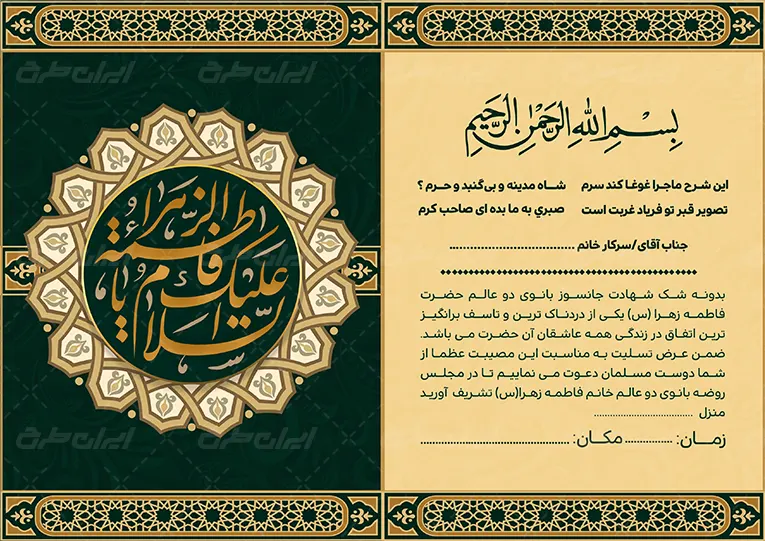 السلام علیک یا فاطمة الزهراء
بِسْمِ اللهِ الرَّحْمٰنِ الرَّحِیمِ
این شرح ماجرا غوغا کند سرم شاه مدینه و بی‌گنبد و حرم ؟
تصویر قبر تو فریاد غربت است صبري به ما بده ای صاحب کرم
جناب آقای/سرکار خانم ................................
بدونه شک شهادت جانسوز بانوی دو عالم حضرت
فاطمه زهرا (س) یکی از دردناک ترین و تاسف برانگیز
ترین اتفاق در زندگی همه عاشقان آن حضرت می باشد.
ضمن عرض تسلیت به مناسبت این مصیبت عظما از
شما دوست مسلمان دعوت می نماییم تا در مجلس
روضه بانوی دو عالم خانم فاطمه زهرا(س) تشریف آورید
منزل ................................
زمان: ................ مکان: ................................
ایران طرح